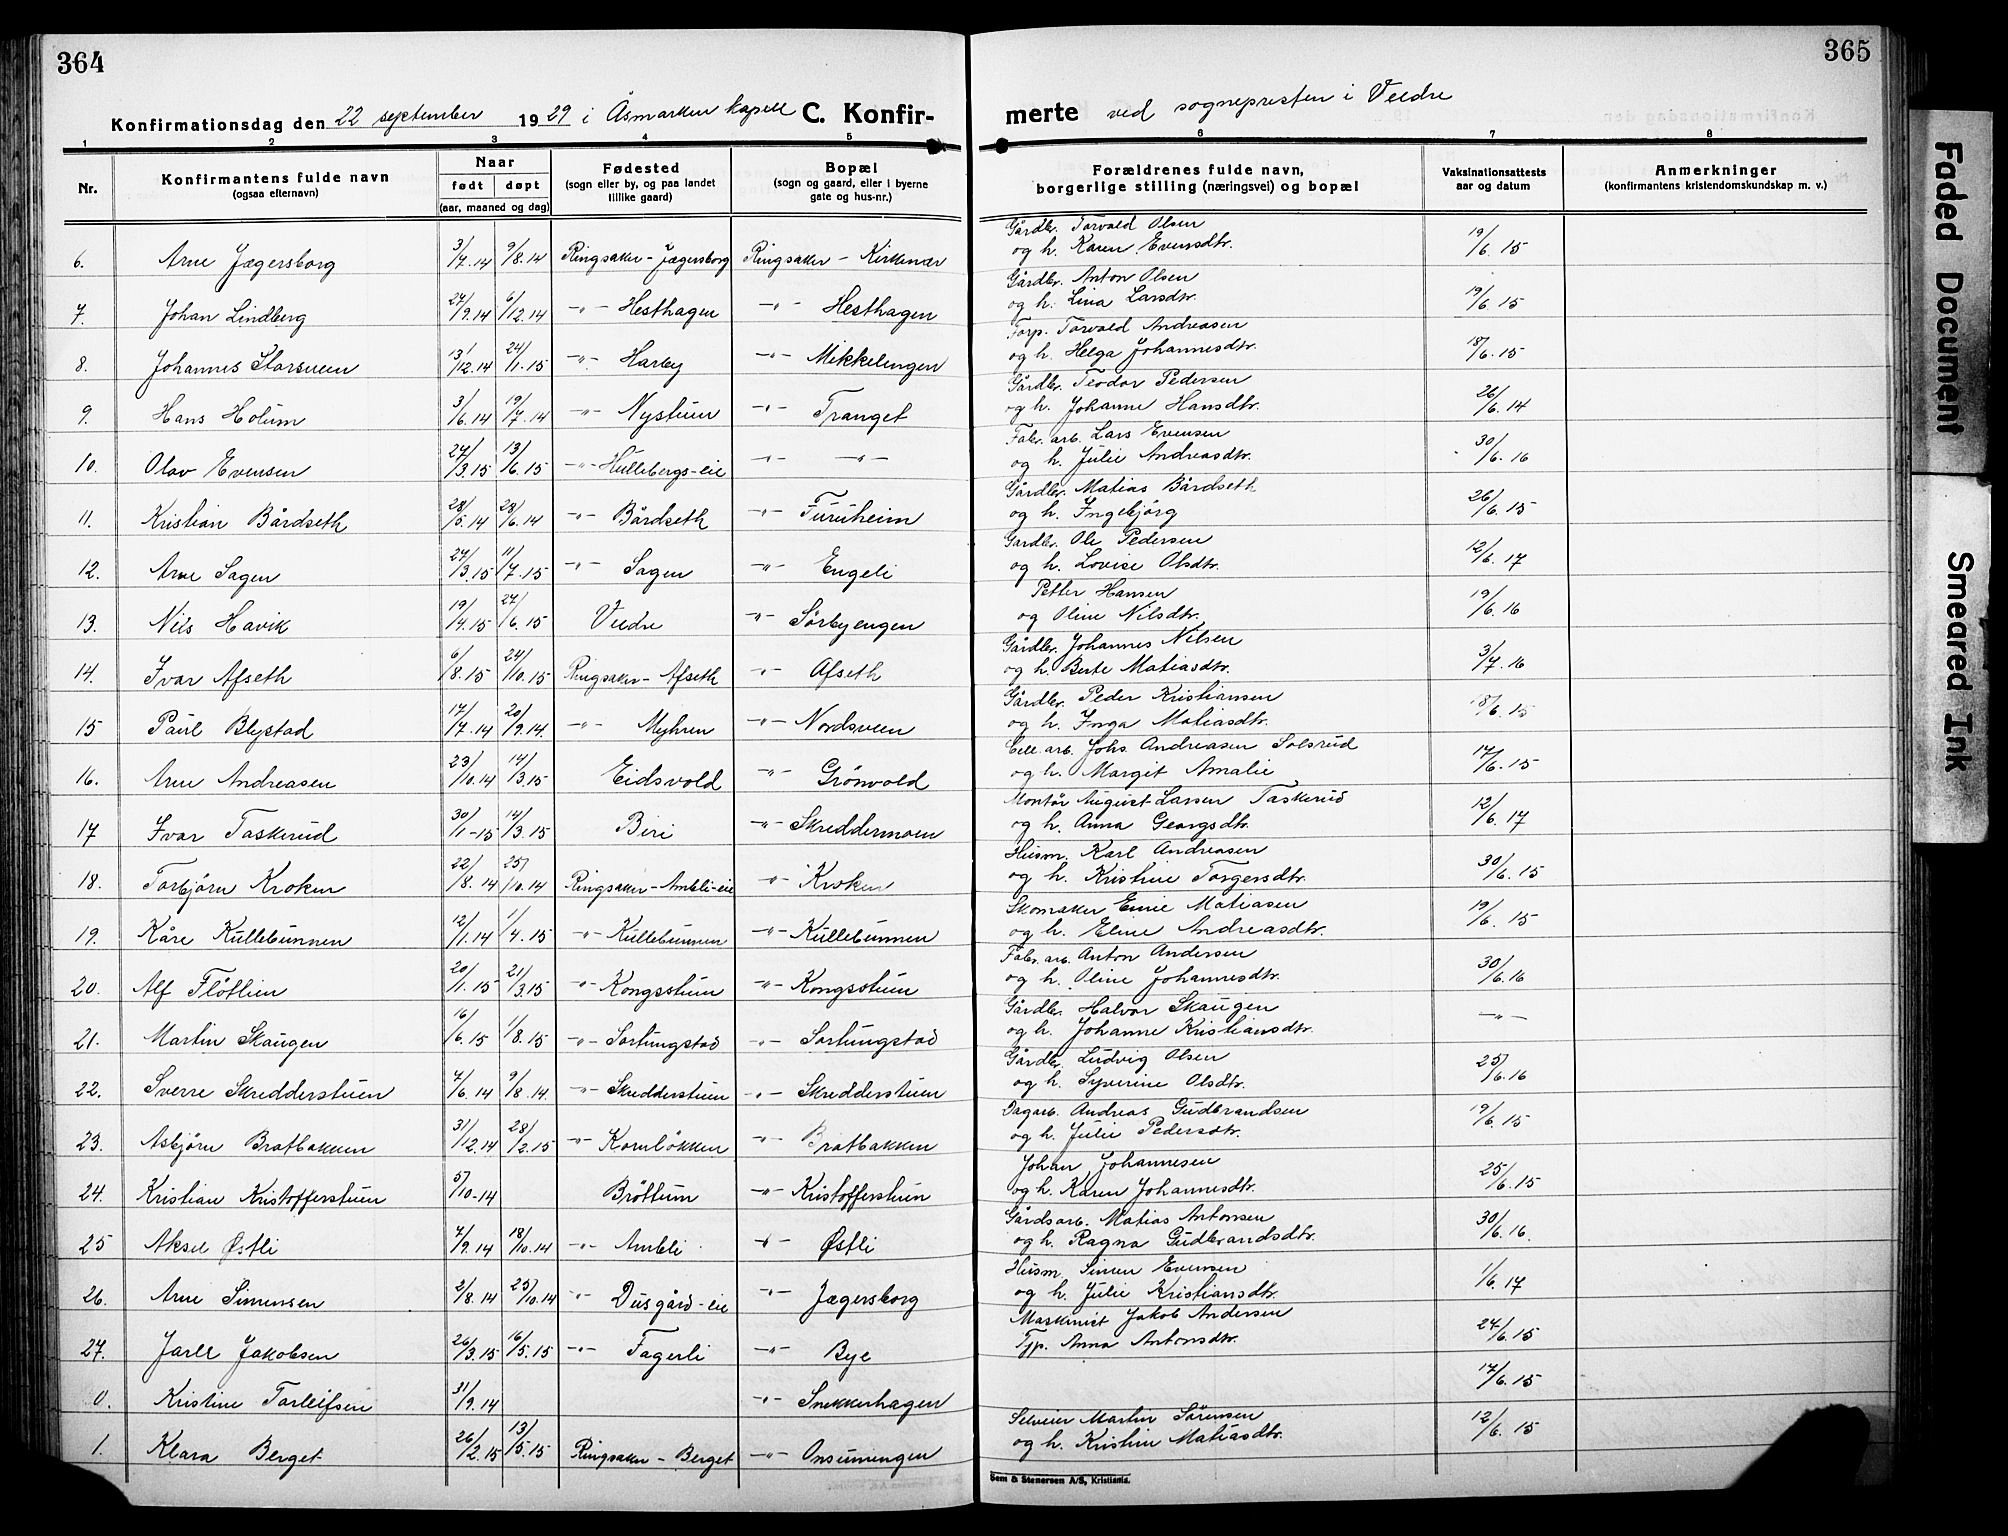 364
365
Konfirmationsdag den 22 september 1929 i Åsmarken kapell C. Konfir-
merte ved sognepresten i Veldre
1 2 3 4 5 6 7 8
Nr. Konfirmantens fulde navn (ogsaa efternavn) Naar født døpt (aar, maaned og dag) Fødested (sogn eller by, og paa landet tillike gaard) Bopæl (sogn og gaard, eller i byerne gate og hus-nr.) Forældrenes fulde navn, borgerlige stilling (næringsvei) og bopæl Vaksinationsattests aar og datum Anmerkninger (konfirmantens kristendomskundskap m. v.)
6. Arne Jægersborg 3/7.14 9/8.14 Ringsaker - Jægersborg Ringsaker - Kirkenær Gårdbr. Torvald Olsen og h. Karen Evensdtr. 19/6.15
7. Johan Lindberg 27/9.14 6/12.14 -"- Hesthagen -"- Hesthagen Gårdbr. Anton Olsen og h. Lina Larsdtr. 19/6.15
8. Johannes Storsveen 13/12.14 24/1.15 -"- Harby -"- Mikkelengen Forp. Torvald Andreasen og h. Helga Johannesdtr. 18/6.15
9. Hans Holum 3/6.14 19/7.14 -"- Nystuen -"- Tranget Gårdbr. Teodor Pedersen og h. Johanne Hansdtr. 26/6.14
10. Olav Evensen 24/3.15 13/6.15 -"- Hullebergs-eie -"- -"- Fabr. arb. Lars Evensen og h. Julie Andreasdtr. 30/6.16
11. Kristian Bårdseth 28/5.14 28/6.14 -"- Bårdseth -"- Furuheim Gårdbr. Matias Bårdseth og h. Ingebjörg 26/6.15
12. Arne Sagen 27/3.15 11/7.15 -"- Sagen -"- Engeli Gårdbr. Ole Pedersen og h. Lovise Olsdtr. 12/6.17
13. Nils Havik 19/4.15 27/6.15 Veldre -"- Sörbyengen Petter Hansen og Oline Nilsdtr. 19/6.16
14. Ivar Afseth 6/8.15 24/10.15 Ringsaker - Afseth -"- Afseth Gårdbr. Johannes Nilsen og h. Berte Matiasdtr. 3/7.16
15 Paul Blystad 17/7.14 20/9.14 -"- Myhren -"- Nordsveen Gårdbr. Peder Kristiansen og h. Inga Matiasdtr. 18/6.15
16. Arne Andreasen 23/10.14 14/3.15 Eidsvold -"- Grönvold Cell. arb. Johs. Andreasen Solsrud og h. Margit Amalie 17/6.15
17 Ivar Taskerud 30/1-15 14/3.15 Biri -"- Skreddermoen Montör August Larsen Taskerud og h. Anna Georgsdtr. 12/6.17
18. Torbjörn Kroken 22/8.14 25/10.14 Ringsaker - Ambli-eie -"- Kroken Husm. Karl Andreasen og h. Kristine Torgersdtr. 30/6.15
19. Kåre Kullebunnen 12/1.14 1/4.15 -"- Kullebunnen -"- Kullebunnen Skomaker Emil Matiasen og h. Eline Andreasdtr. 19/6.15
20. Alf Flötlien 20/1.15 21/3.15 -"- Kongsstuen -"- Kongsstuen Fabr. arb. Anton Andersen og h. Oline Johannesdtr. 30/6.16
21. Martin Skaugen 16/6.15 1/8.15 -"- Sortungstad -"- Sortungstad Gårdbr. Halvor Skaugen og h. Johanne Kristiansdtr. -"-
22. Sverre Skredderstuen 7/6.14 9/8.14. -"- Skredderstuen -"- Skredderstuen Gårdbr. Ludvig Olsen og h. Syverine Olsdtr. 25/6.16
23. Asbjörn Bratbakken 31/12.14 28/2.15 -"- Kornlökken -"- Bratbakken Dagarb. Andreas Gudbrandsen og h. Julie Pedersdtr. 19/6.15
24. Kristian Kristofferstuen 5/10-14 Bröttum -"- Kristofferstuen Johan Johannesen og h. Karen Johannesdtr. 25/6.15
25 Aksel Østli 7/9.14 18/10.14 -"- Ambli -"- Østli Gårdsarb. Matias Antonsen og h. Ragna Gudbrandsdtr. 30/6.16.
26. Arne Simensen 2/8.14 25/10.14 -"- Dusgård-eie -"- Jægersborg Husm. Simen Evensen og h. Julie Kristiansdtr. 1/6.17
27. Jarle Jakobsen 26/3.15 16/5.15 -"- Fagerli -"- Bye Maskinist Jakob Andersen Tjp. Anna Antonsdtr. 24/6.15
0. Kristine Torleifsen 31/9.14 -"- Snekkerhagen 17/6.15
1. Klara Berget 26/2.15 13/5.15 Ringsaker - Berget -"- Onsumengen Selveier Martin Sörensen og h. Kristine Matiasdtr. 12/6.15
Sem & Stenersen A/S, Kristiania.
Faded Document
Smeared Ink